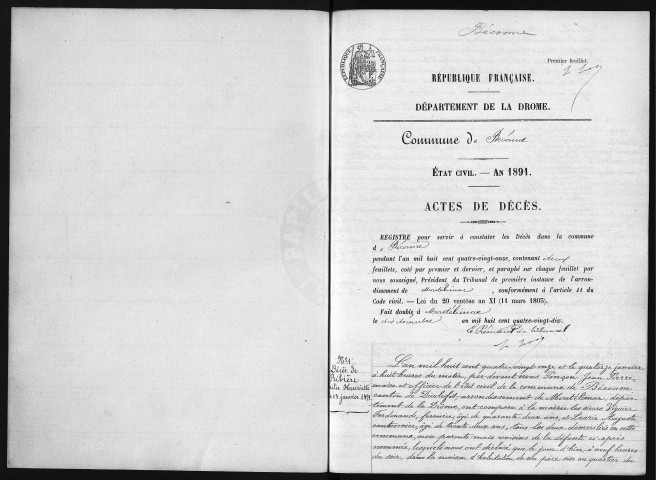 Béconne
Premier feuillet.
RÉPUBLIQUE FRANÇAISE
RÉPUBLIQUE FRANÇAISE.
DÉPARTEMENT DE LA DROME.
Commune de Béconne
ÉTAT CIVIL. — AN 1891.
ACTES DE DÉCÈS.
REGISTRE pour servir à constater les Décès dans la commune
d e Béconne
pendant l'an mil huit cent quatre-vingt-onze, contenant deux
feuillets, coté par premier et dernier, et paraphé sur chaque feuillet par
nous soussigné, Président du Tribunal de première instance de l'arron-
dissement de Montélimar, conformément à l'article 41 du
Code civil. — Loi du 20 ventôse an XI (11 mars 1803).
Fait double à Montélimar
le dix décembre an mil huit cent quatre-vingt-dix.
Le Président du tribunal
N° 1
Décès de
Henriette
janvier 1891
L'an mil huit cent quatre vingt onze et le quatorze janvier
à huit heures du matin, par devant nous Jean Pierre
maire et officier de l'état civil de la commune de Béconne
canton de Dieulefit, arrondissement de Montélimar, dépar-
tement de la Drôme, ont comparu à la mairie les sieurs
Ferdinand, fermier, âgé de quarante deux ans, et Auguste
cantonnier, âgé de trente deux ans, tous les deux domiciliés en cette
commune, non parents mais voisins de la défunte ci-après
nommée, lesquels nous ont déclaré que le jour d'hier à neuf heures
du soir, dans la maison d'habitation de son père sise au quartier du